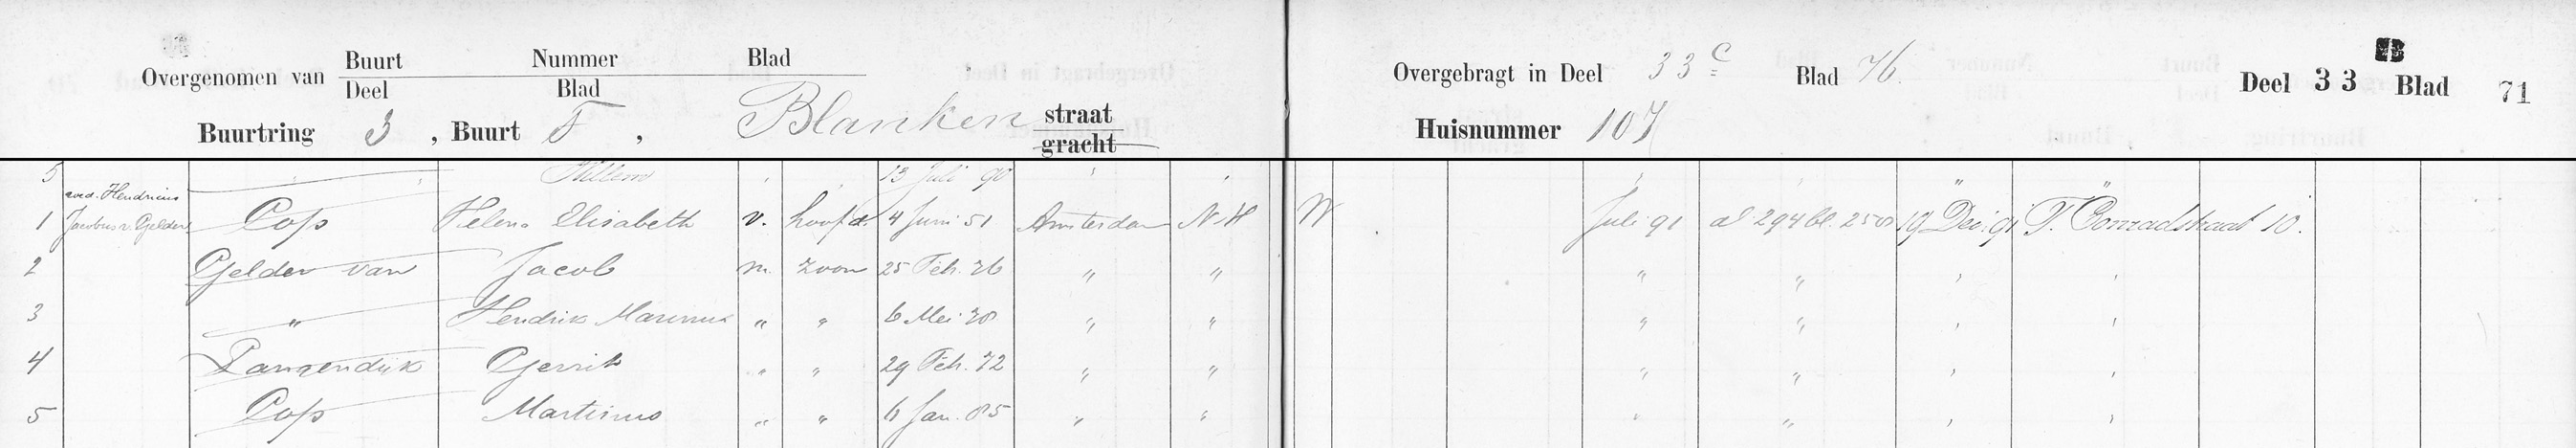 Overgenomen van Buurt Nummer Blad
Deel Blad
Overgebragt in Deel 33 C Blad 76. Deel 33 Blad 71
Buurtring 3, Buurt F, Blanken straat gracht Huisnummer 107
5 " " Willem " " 13 Juli 90 " " " " " "
wed. Hendricus
1 Jacobus v. Gelder Pop Helena Elisabeth v. hoofd. 4 Juni 51 Amsterdam N.H W Juli 91 al 294 bl. 250 19 Dec. 91 F. Conradstraat 10.
2 Gelder van Jacob m. zoon 25 Feb. 76 " " " " " "
3 " Hendrik Marinus " " 6 Mei 78 " " " " " "
4 Langendijk Gerrit " " 29 Feb. 72 " " " " " "
5 Pop Martinus " " 6 Jan. 85 " " " " " "